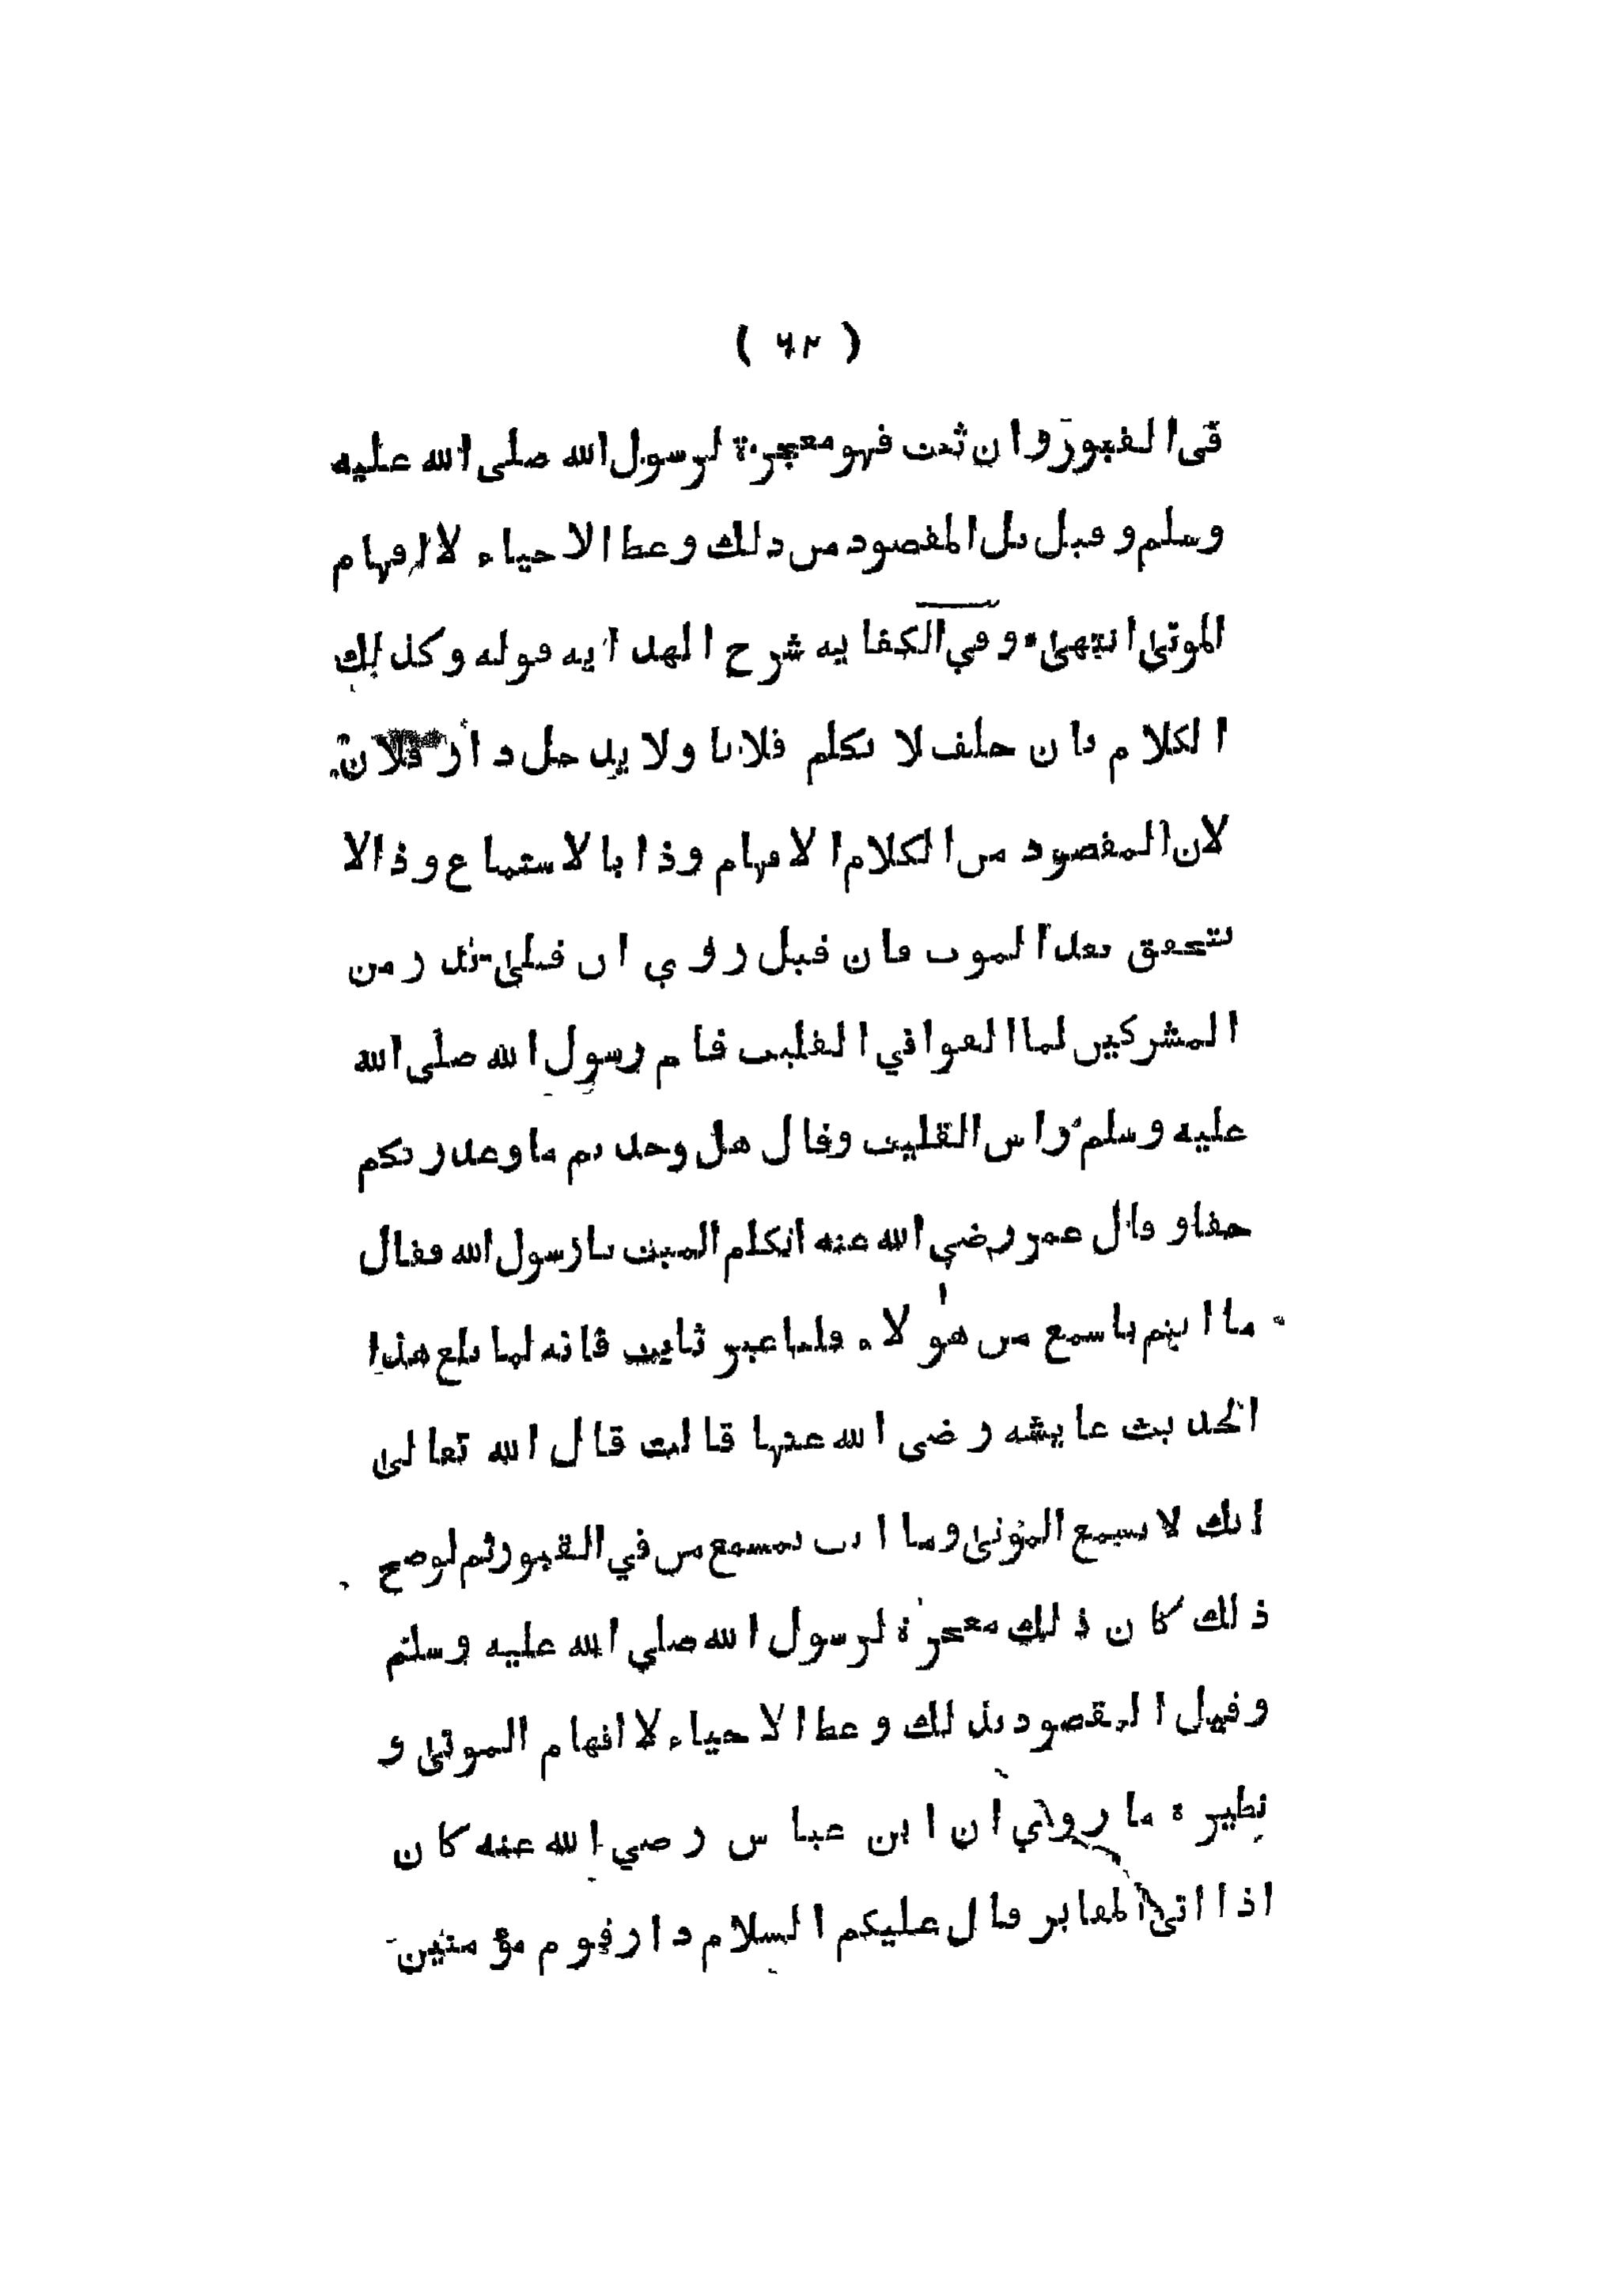 ( ۶۲ )
في القبور وان ثبت فهو معجزة لرسول الله صلى الله عليه
وسلم وقيل بل المقصود من ذلك وعظ الاحياء لا افهام
الموتىٰ انتهىٰ وفي الكفايه شرح الهدايه قوله وكذلك
الكلام بان حلف لا يكلم فلانا ولا يدخل دار فلان
لان المقصود من الكلام الافهام وذا بالاستماع وذا لا
يتحقق بعد الموت فان قيل روي ان قتلىٰ بدر من
المشركين لما القوا في القليب قام رسول الله صلى الله
عليه وسلم راس القليب وقال هل وجدتم ما وعد ربكم
حقا و قال عمر رضي الله عنه اتكلم الميت يا رسول الله فقال
ما انتم باسمع من هؤلاء قلنا غير ثابت فانه لما بلغ هذا
الحديث عايشه رضى الله عنها قالت قال الله تعالىٰ
انك لا تسمع الموتىٰ وما انت بمسمع من في القبور ثم لو صح
ذلك كان ذلك معجزة لرسول الله صلي الله عليه وسلم
وقيل المقصود بذلك وعظ الاحياء لا افهام الموتىٰ و
نظيره ما روي ان ابن عباس رضي الله عنه كان
اذا اتىٰ المقابر قال عليكم السلام دار قوم مؤمنين